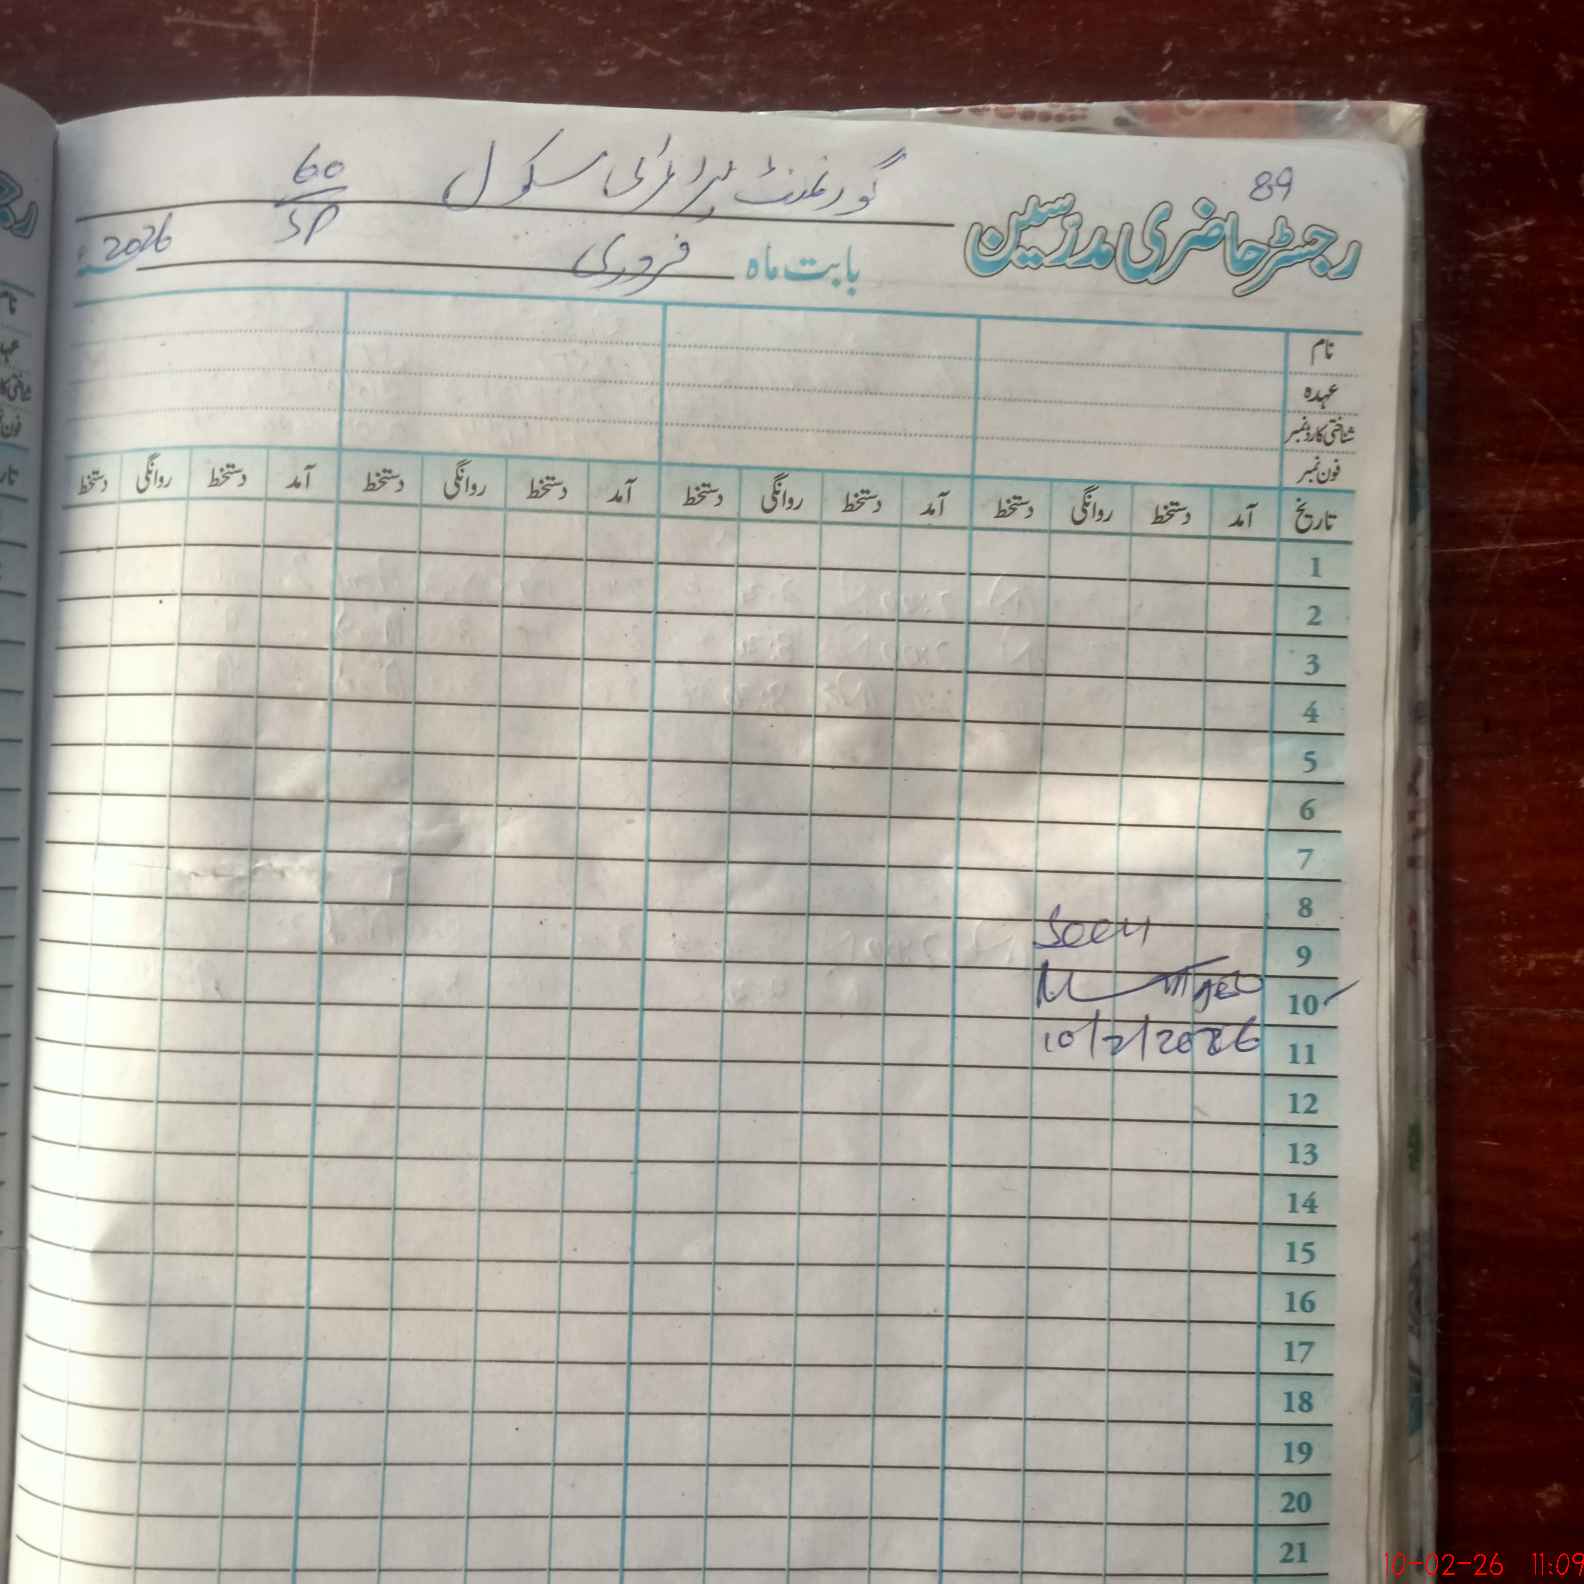 89
رجسٹر حاضری مدرسین گورنمنٹ پرائمری سکول 60/SP
بابت ماہ فروری 2026ء
نام
عہدہ
شناختی کارڈ نمبر
فون نمبر
تاریخ آمد دستخط روانگی دستخط آمد دستخط روانگی دستخط آمد دستخط روانگی دستخط آمد دستخط روانگی دستخط
1
2
3
4
5
6
7
8
Seen
9
10
10/2/2026
11
12
13
14
15
16
17
18
19
20
21
10-02-26 11:09